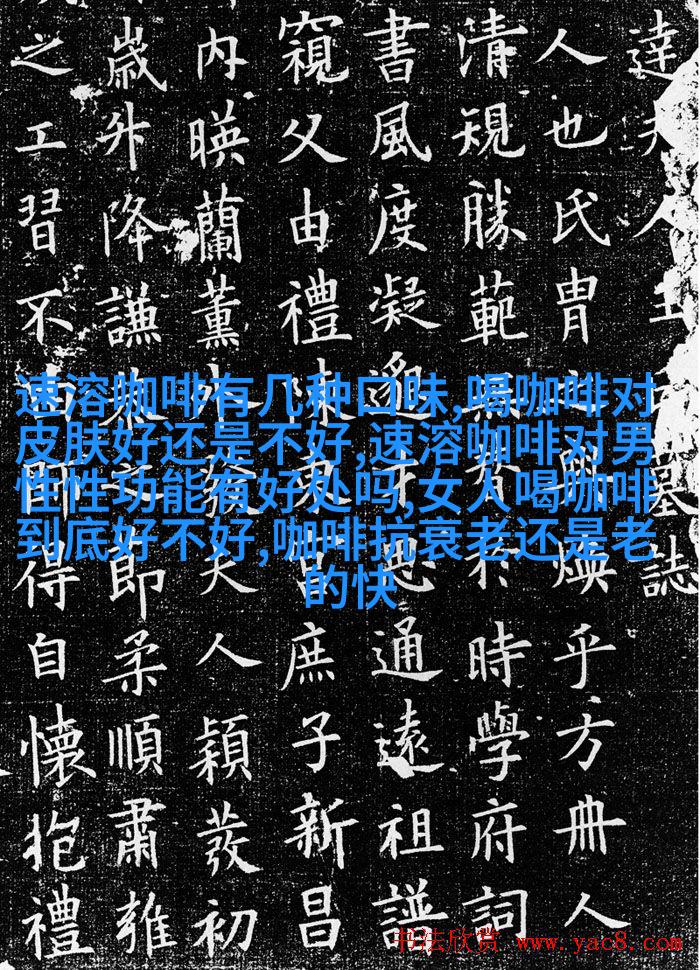 達夫人王墓誌
人也氏冑煥乎方冊人
清規勝範於時學府詞
書風度凝邈才思通遠祖
窺父由禮陳庶子新昌
内暎蘭薰外發夫人穎發初
歲升降謙即柔順肅雍
之工習不由師得自懷抱禮
速溶咖啡有几种口味,喝咖啡对
皮肤好还是不好,速溶咖啡对男
性性功能有好处吗,女人喝咖啡
到底好不好,咖啡抗衰老还是老
的快
书法欣赏 www.yac8.com